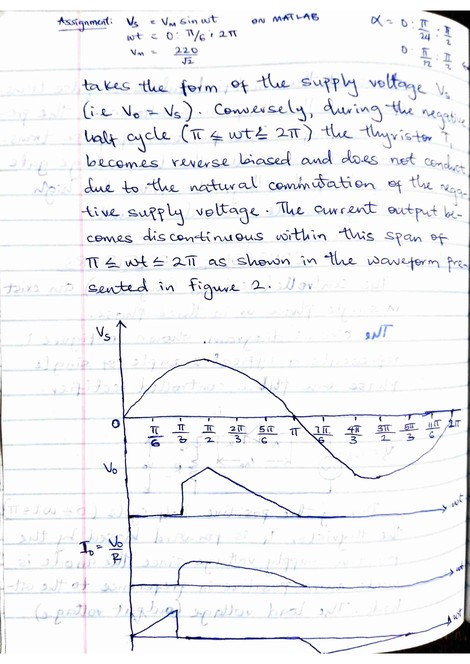 Assignment: Vs = Vm sin wt ON MATLAB α = 0 : π/24 : π/2
wt = 0 : π/6 : 2π 0 : π/12 : π/2
Vm = 220/√2
takes the form of the supply voltage Vs
(i.e Vo = Vs). Conversely, during the negative
half cycle (π ≤ wt ≤ 2π) the thyristor T1
becomes reverse biased and does not conduct
due to the natural commutation of the nega-
tive supply voltage. The current output be-
comes discontinuous within this span of
π ≤ wt ≤ 2π as shown in the waveform pre-
sented in figure 2.
Vs
0 π/6 π/3 π/2 2π/3 5π/6 π 7π/6 4π/3 3π/2 5π/3 11π/6 2π
Vo
wt
Io = Vo/R
wt
wt